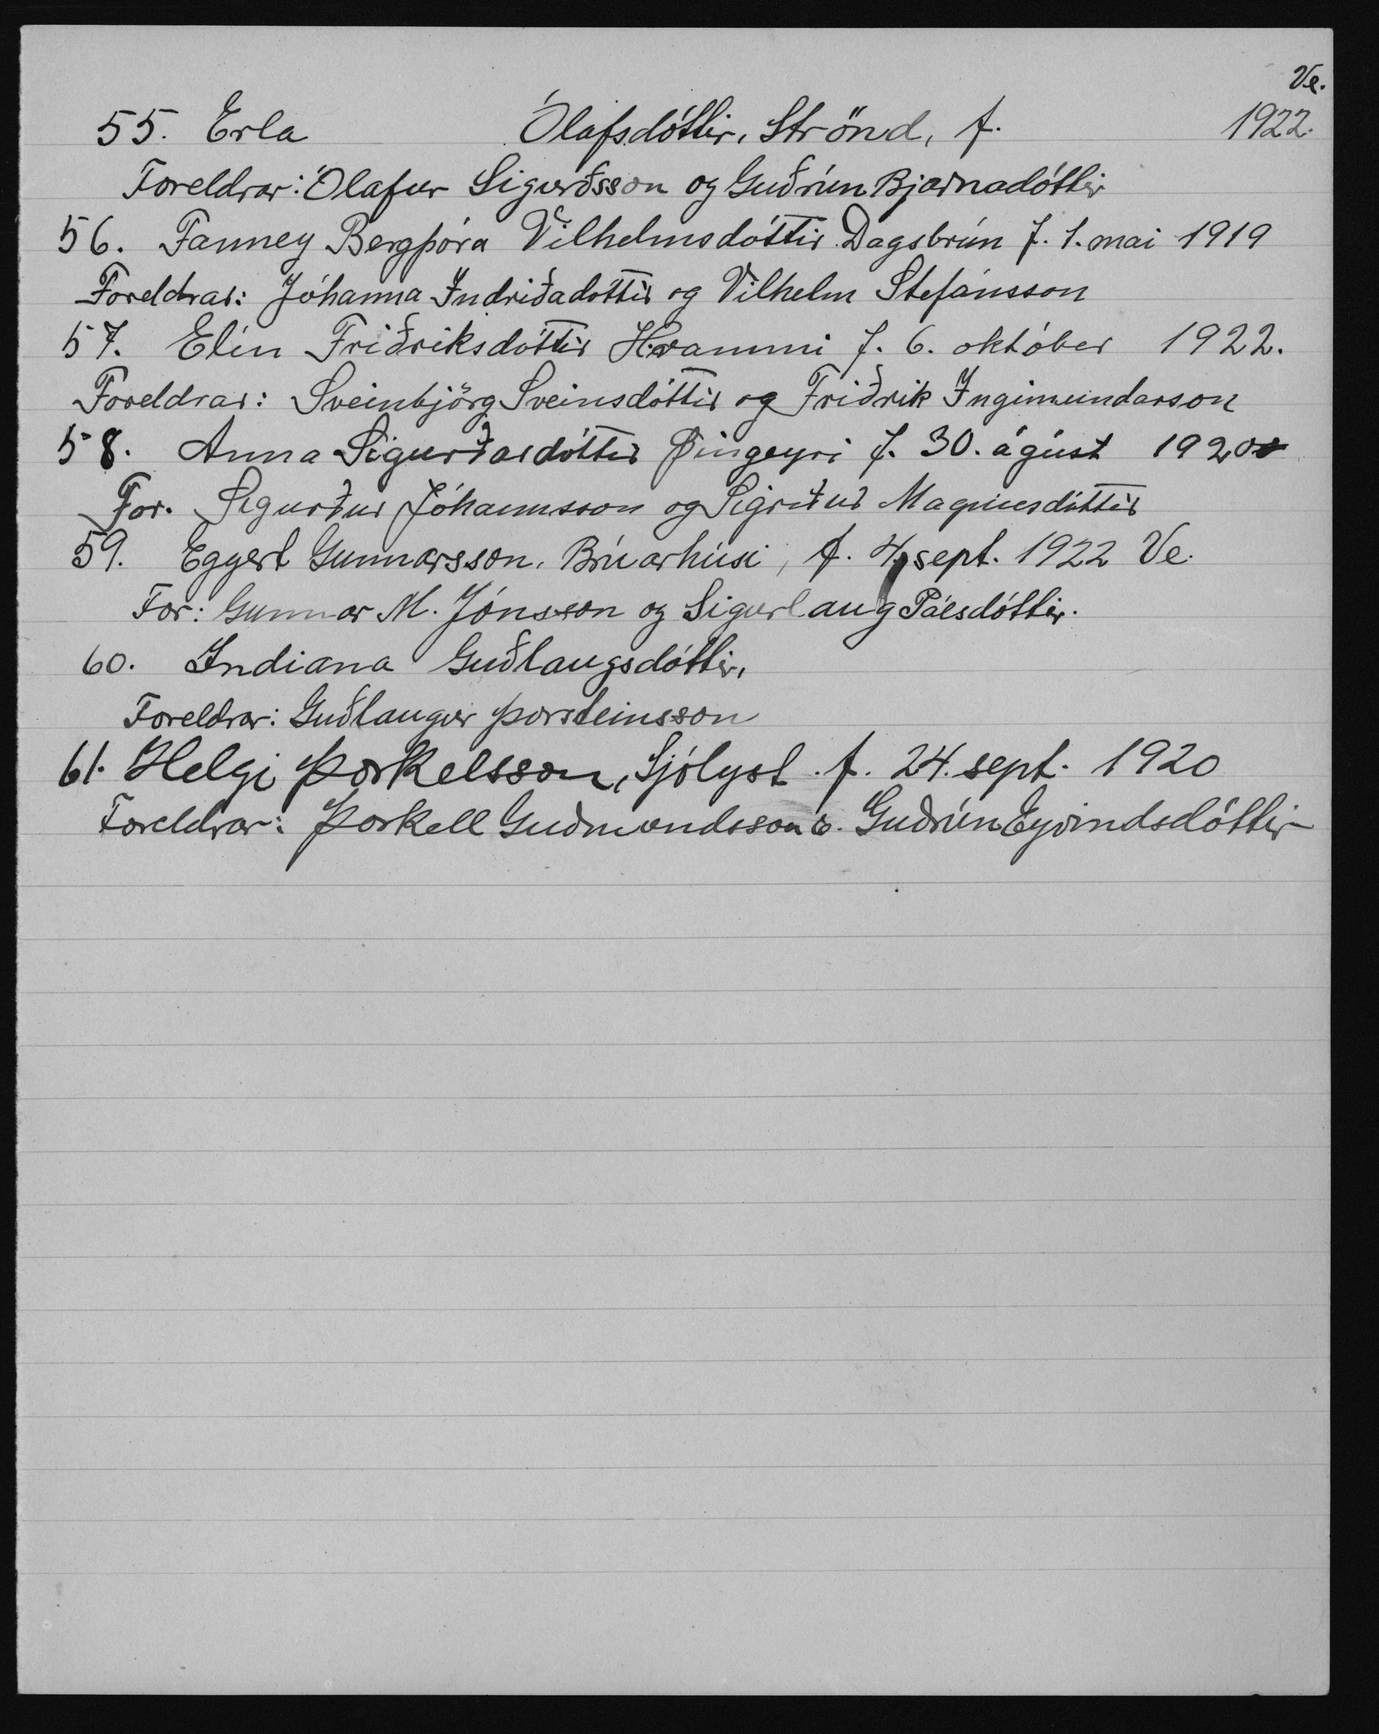 Ve.
55. Erla Ólafsdóttir, Strönd, f. 1922.
Foreldrar: Ólafur Sigurðsson og Guðrún Bjarnadóttir
56. Fanney Bergþóra Vilhelmsdóttir Dagsbrún f. 1. mai 1919
Foreldrar: Jóhanna Indriðadóttir og Vilhelm Stefánsson
57. Elín Friðriksdóttir Hvammi f. 6. október 1922.
Foreldrar: Sveinbjörg Sveinsdóttir og Friðrik Ingimundarson
58. Anna Sigurðardóttir Þingeyri f. 30. ágúst 1920
For. Sigurður Jóhannsson og Sigríður Magnúsdóttir
59. Eggert Gunnarsson, Brúarhúsi, f. 4. sept. 1922 Ve.
For: Gunnar M. Jónsson og Sigurlaug Pálsdóttir.
60. Indiana Guðlaugsdóttir,
Foreldrar: Guðlaugur Þorsteinsson
61. Helgi Þorkelsson, Sjólyst. f. 24. sept. 1920
Foreldrar: Þorkell Guðmundsson o. Guðrún Eyvindsdóttir